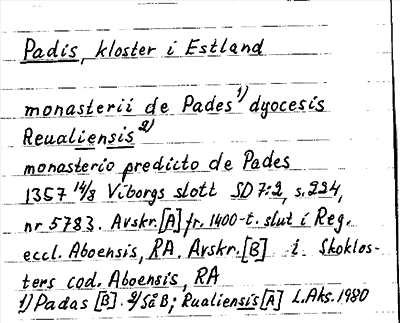 Padis, kloster i Estland
monasterii de Pades 1) dyocesis
Reualiensis 2)
monasterio predicto de Pades
1357 14/8 Viborgs slott SD 7:2, s. 224,
nr 5783. Avskr. [A] fr. 1400-t. slut i Reg.
eccl. Aboensis, RA. Avskr. [B] i Skoklos-
ters cod. Aboensis, RA
1) Padas [B]. 2) Så B; Rualiensis [A] L.Aks. 1980